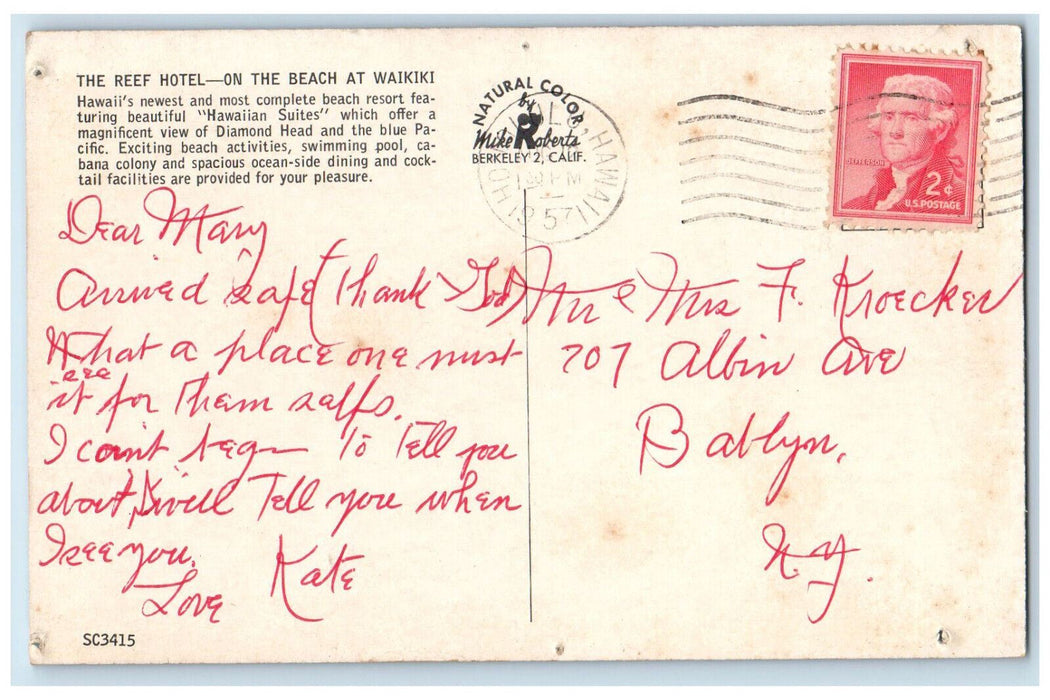 THE REEF HOTEL—ON THE BEACH AT WAIKIKI
Hawaii's newest and most complete beach resort fea-
turing beautiful "Hawaiian Suites" which offer a
magnificent view of Diamond Head and the blue Pa-
cific. Exciting beach activities, swimming pool, ca-
bana colony and spacious ocean-side dining and cock-
tail facilities are provided for your pleasure.
NATURAL COLOR
by
Mike Roberts
BERKELEY 2, CALIF.
HAWAII
PM
1957
JEFFERSON
2¢
U.S. POSTAGE
Dear Mary
Arrived safe (Thank God)
What a place one must
see
it for Them salfs.
I can't beg To Tell you
about, will Tell you when
I see you.
Love Kate
Mr & Mrs F. Kroecker
707 Albin Ave
Bablyn,
N.Y.
SC3415